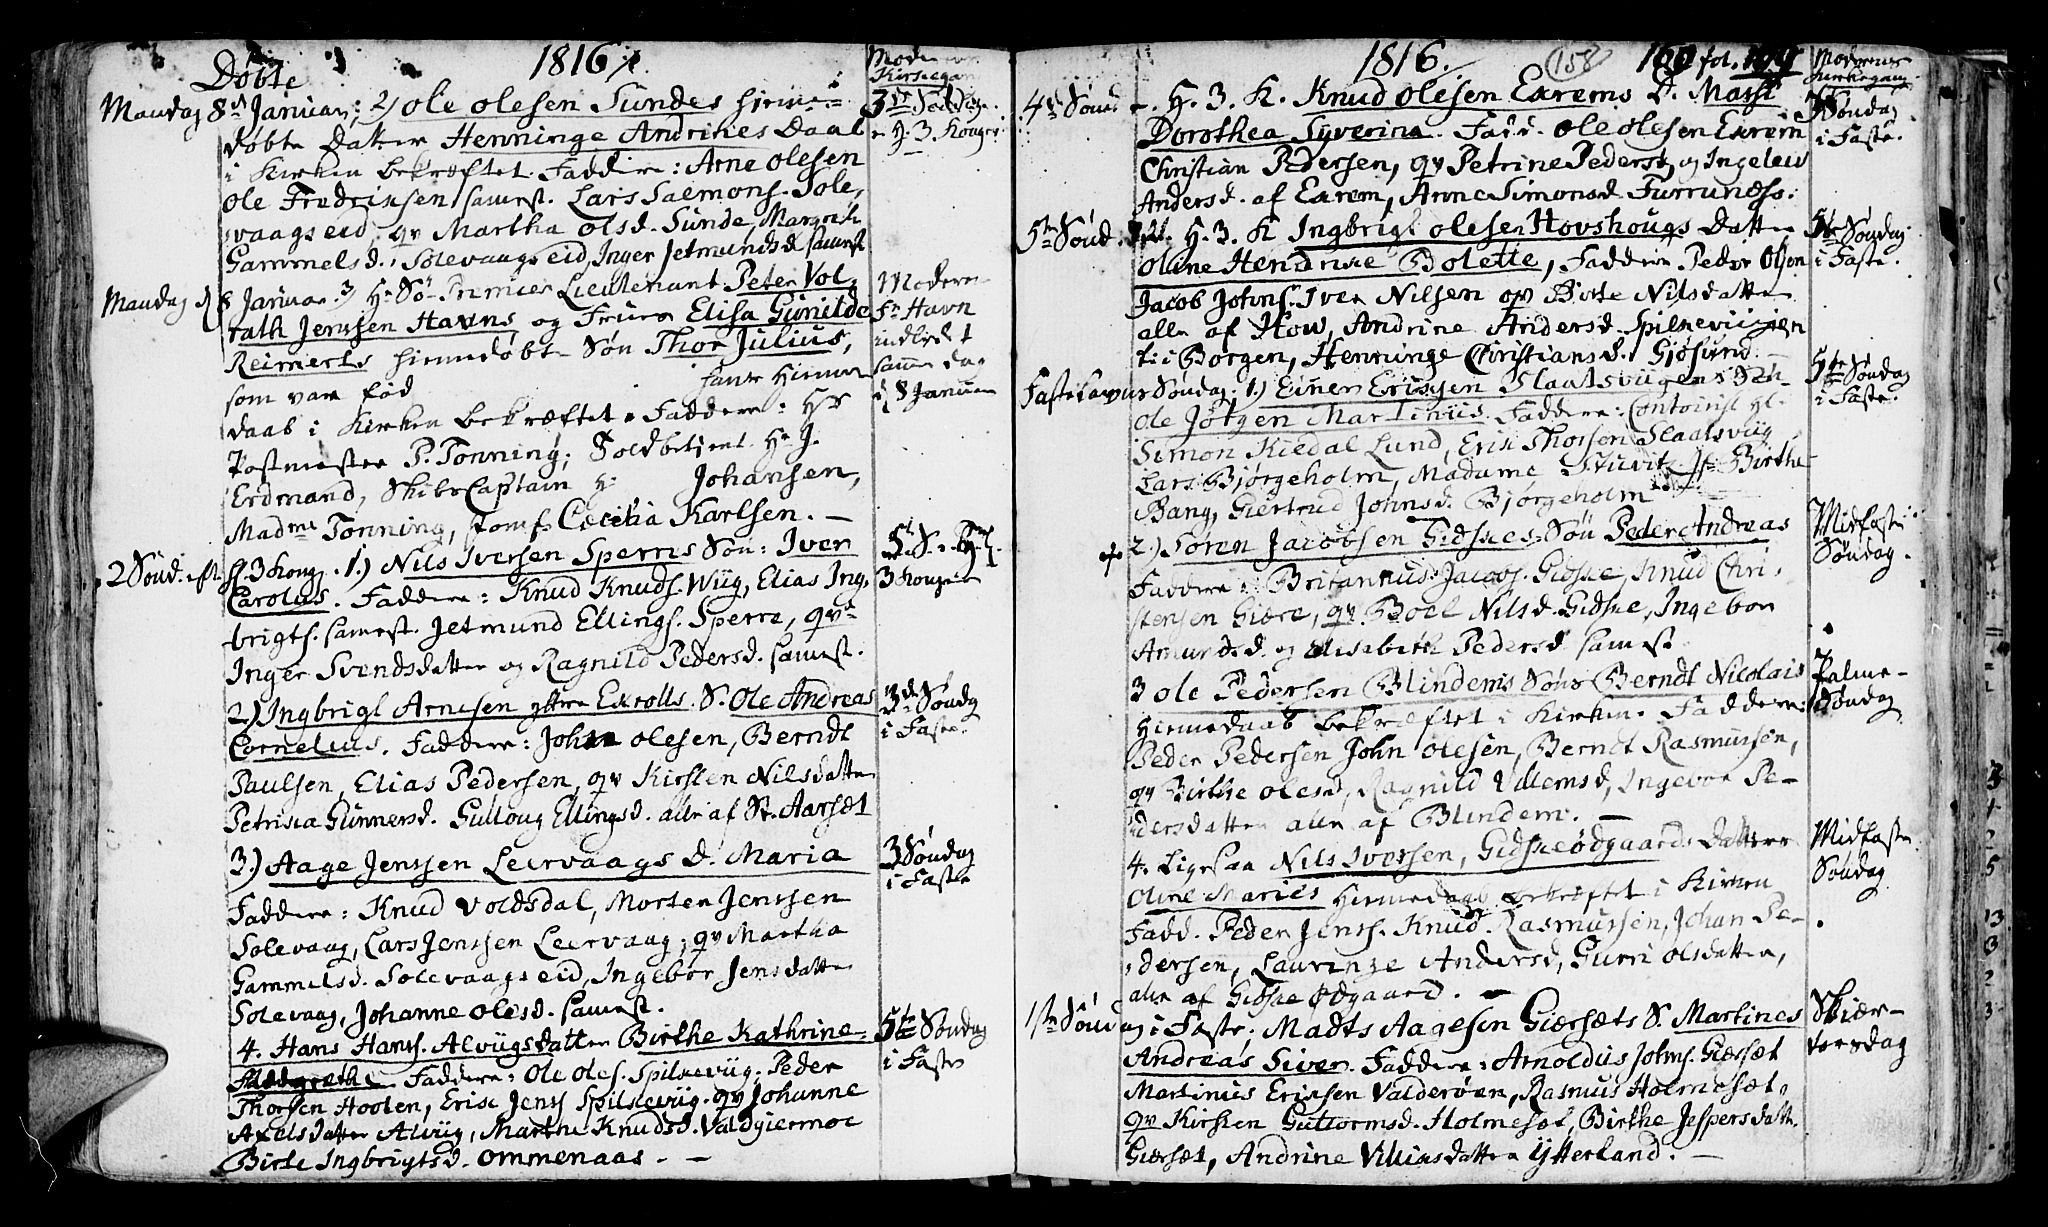 Døbte
1816
Moderens
Kirkegang
Mandag 8de Januar; 2) Ole Olesen Sundes hiemme=
døbte Datter Henninge Andrines Daab
i Kirken bekræftet. Faddere: Arne Olesen
Ole Fredriksen samest. Lars Salmons. Sole,
vaagseid, qv Martha Olsd. Sunde, Margrete
Gammelsd. Solevaagseid, Inger Jetmundsd samest
3de Søndag
e. H. 3. Konger
Mandag d 8 Januar 3) Hr Sø-Premier Lieutenant Peter Vol,
rath Jenssen Havns og Frue Elisa Gunilde
Reimerts hiemmedøbte Søn Thor Julius,
som var fød
samt Hiemme
daab i Kirken bekræftet. Faddere: Hr
Postmester P. Tønning; Toldbetient Hr J.
Erdmand, Skibs Captain Hr Johansen,
Madme Tønning, Jomf. Cecilia Karlsen. —
Moderen
Fr Havn
indledt
samme dag
d 8 Januar
2 Sønd. eft. H. 3 Kong. 1.) Nils Iversen Sperres Søn: Iver
Carolus. Faddere: Knud Knuds. Wiig, Elias Ing,
brigts. samest. Jetmund Ellings. Sperre, qv
Inger Svendsdatter og Ragnild Pedersd. samest.
3 Konger
2) Ingbrigt Arnesen yttre Exrolls. S. Ole Andreas
Cornelius. Faddere: John Olesen, Berndt
Paulsen, Elias Pedersen, qv Kirsten Nilsdatter
Petrika Gunnersd. Gulloug Ellingsd. alle af St. Aarset
3de Søndag
i Faste.
3.) Aage Jenssen Leervaags D. Maria
Faddere: Knud Voldsdal, Morten Jenssen
Solevaag, Lars Jenssen Leervaag; qv Martha
Gammelsd. Solevaagseid, Ingebor Jensdatter
Solevaag, Johanne Olesd. samest.
3 Søndag
i Faste
4. Hans Hanss. Alvügs datter Birthe Kathrine
Faddere: Ole Oles. Spilkeviig; Peder
Thorsen Hoolen, Erik Jenss Spilkeviig. qv Johanne
Axelsdatter Alvüg, Marthe Knudsd. Valdgiermoe
Birte Ingbrigtsd. Ommenaas. —
5te Søndag
i Faste
1816.
158
160 fol.
Moderens
Kirkegang
4de Sønd. e. H. 3. K. Knud Olesen Exrems D. Massi
Dorothea Syverina. Fadd. Ole Olesen Exrem
Christian Pedersen, qv Petrine Pedersd, og Ingeleiv
Andersd. af Exrem, Anne Simonsd Furrunæss.
Søndag
i Faste.
5te Sønd. eft. H. 3. K Ingbrigt Olesen Hovshougs Datter
Oline Hendrike Bolette, Faddere Peder Olsen
Jacob Johns. Iver Nilsen qv Birte Nilsdatter
alle af How, Andrine Andersd. Spilkeviigen
ti i Borgen, Henninge Christiansd. Gjøsund. —
5te Søndag
i Faste.
Fastelavns Søndag. 1.) Einer Eriksen Slaatsviigens Søn
Ole Jørgen Martinus. Faddere: Contoirist Hr.
Simon Kildal Lund, Erik Thorsen Slaatsviig
Lars Bjørgeholm, Madame Stuvitz Jf. Birthe
Bang, Giertrud Johnsd. Bjørgeholm
5te Søndag
i Faste.
2.) Søren Jacobsen Gidskes. Søn Peder Andreas
Faddere: Britannus Jacobs. Gidske, Knud Chri,
stensen Giære, qv. Boel Nilsd. Gidske, Ingebor
Amundsd. og Elisabeth Pedersd samest
Midfaste
Søndag.
3 Ole Pedersen Blindems Søns Berndt Nicolais
Hiemedaab bekræftet i Kirken. Faddere:
Peder Pedersen John Olesen, Berndt Rasmussen,
qv Birthe Olesd, Ragnild Villemsd, Ingebor Pe-
dersdatter alle af Blindem. —
Palme-
Søndag
4. Ligesaa Nils Iversen, Gidskeødgaards Datters
Oline Maries Hiemedaab bekræftet i Kirken
Fadd. Peder Jenss. Knud Rasmussen, Johan Pe-
dersen, Laurense Andersd, Gurri Olsdatter,
alle af Gidske Ødgaard. —
Midfaste
Søndag
1ste Søndag i Faste; Madts Aagesen Giærsæts S. Martines
Andreas Siver. Faddere: Arnoldus Johns. Giærsæt
Martinus Eriksen Valderøen, Rasmus Holmesæt,
qv Kirsten Guttormsd. Holmesæt, Birthe Jespersdatt.
Giærsæt, Andrine Villiksdatter Ytterland. —
Skiær-
torsdag